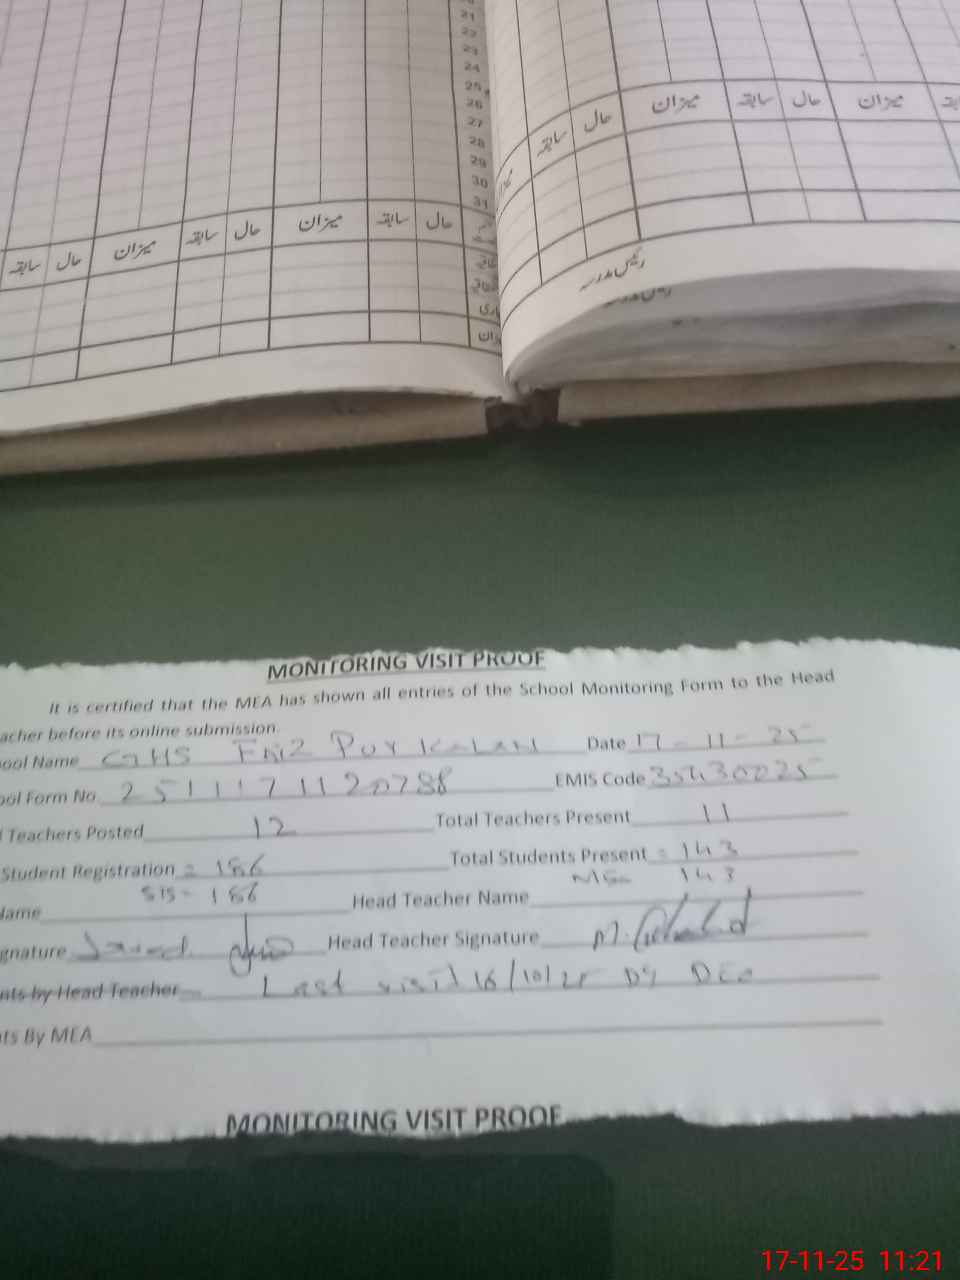 21
22
23
24
25
26
27
28
29
30
31
میزان سابقہ حال میزان سابقہ حال
رئیس مدرسہ
حال سابقہ میزان حال سابقہ میزان حال سابقہ
MONITORING VISIT PROOF
It is certified that the MEA has shown all entries of the School Monitoring Form to the Head
acher before its online submission.
ool Name GHS Pur Kalan Date 17-11-25
ool Form No. 2511171120788 EMIS Code 35430025
Teachers Posted 12 Total Teachers Present 11
Student Registration = 186 Total Students Present = 143
SIS - 186 143
Name Head Teacher Name
gnature Javed Head Teacher Signature
nts by Head Teacher Last visit 16/10/25 by DEO
ts By MEA
MONITORING VISIT PROOF
17-11-25 11:21